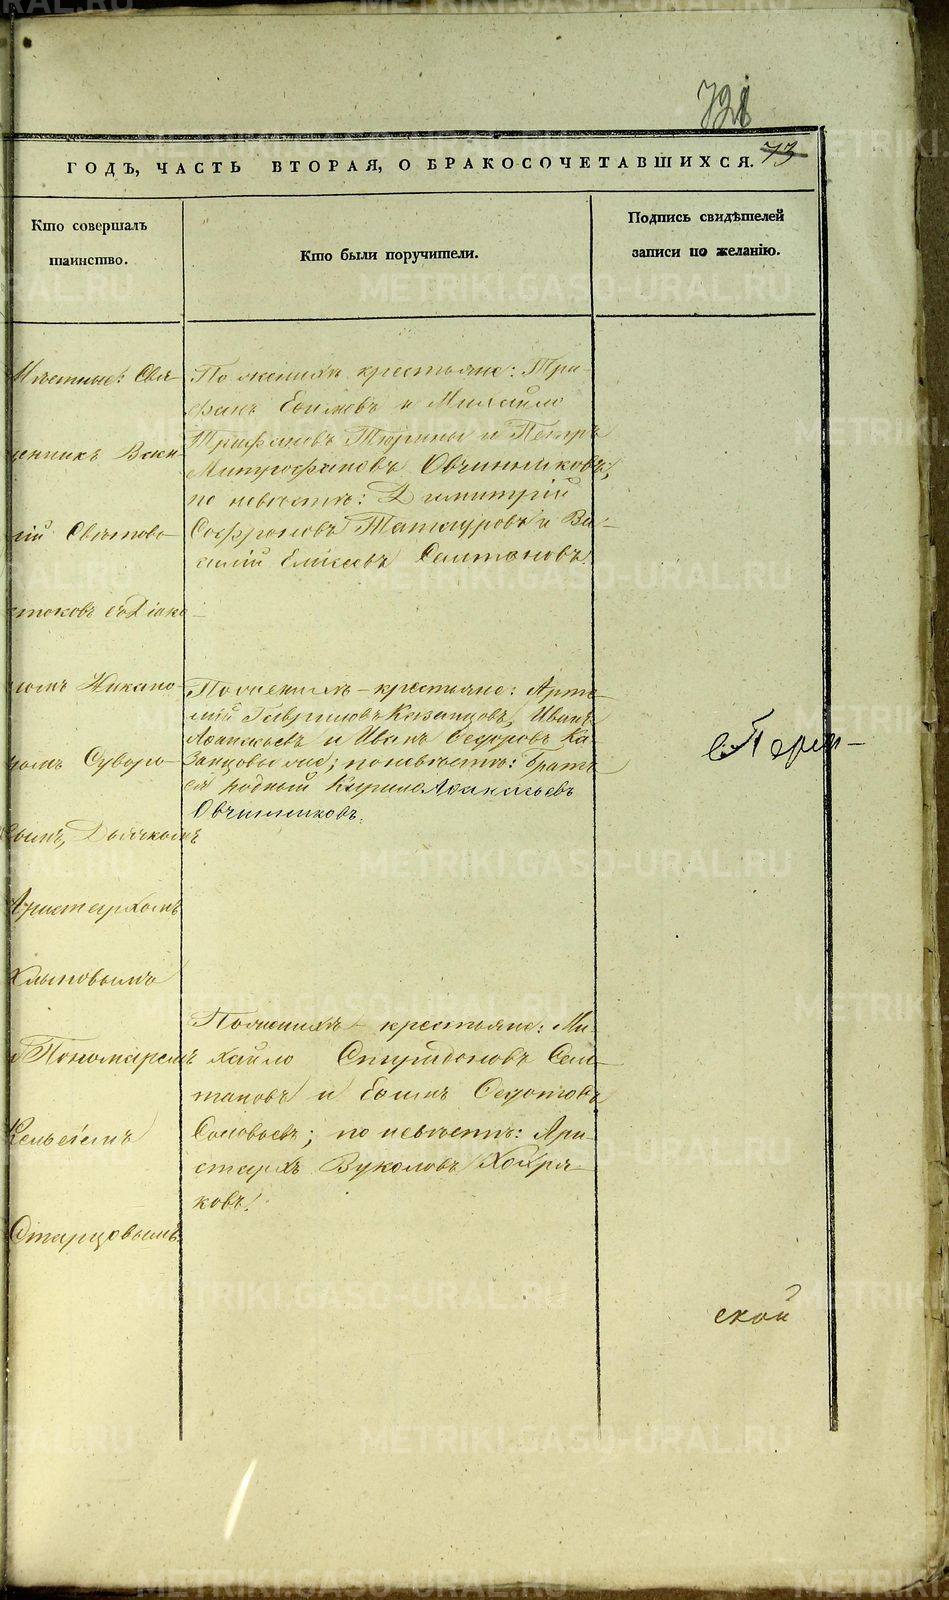 721
ГОДЪ, ЧАСТЬ ВТОРАЯ, О БРАКОСОЧЕТАВШИХСЯ. 73
Кто совершалъ
таинство.
Кто были поручители.
Подпись свидѣтелей
записи по желанію.
Мѣстные: Свя-
щенникъ Васи-
лій Свѣтово-
стоковъ съ Діако-
номъ Никано-
ромъ Суворо-
вымъ, Дьячкомъ
Аристархомъ
Хлыновымъ
и Пономаремъ
Старцовымъ.
По женихѣ крестьяне: Три-
фанъ Ефимовъ и Михайло
Трифановъ Тюрины и Петръ
Митрофановъ Овчинниковъ,
по невѣстѣ: Димитрій
Софроновъ Татауровъ и Ва-
силій Елисеевъ Салтановъ.
По женихѣ крестьяне: Арте-
мій Гавриловъ Казанцовъ, Иванъ
Афанасьевъ и Иванъ Федоровъ Ка-
занцовы же; по невѣстѣ: братъ
ея родный Кирило Афанасьевъ
Овчинниковъ.
По женихѣ крестьяне: Ми-
хайло Спиридоновъ Сал-
тановъ и Ефимъ Федотовъ
Соловьевъ; по невѣстѣ: Ари-
стархъ Вуколовъ Хохря-
ковъ.
Перм-
ской
METRIKI.GASO-URAL.RU